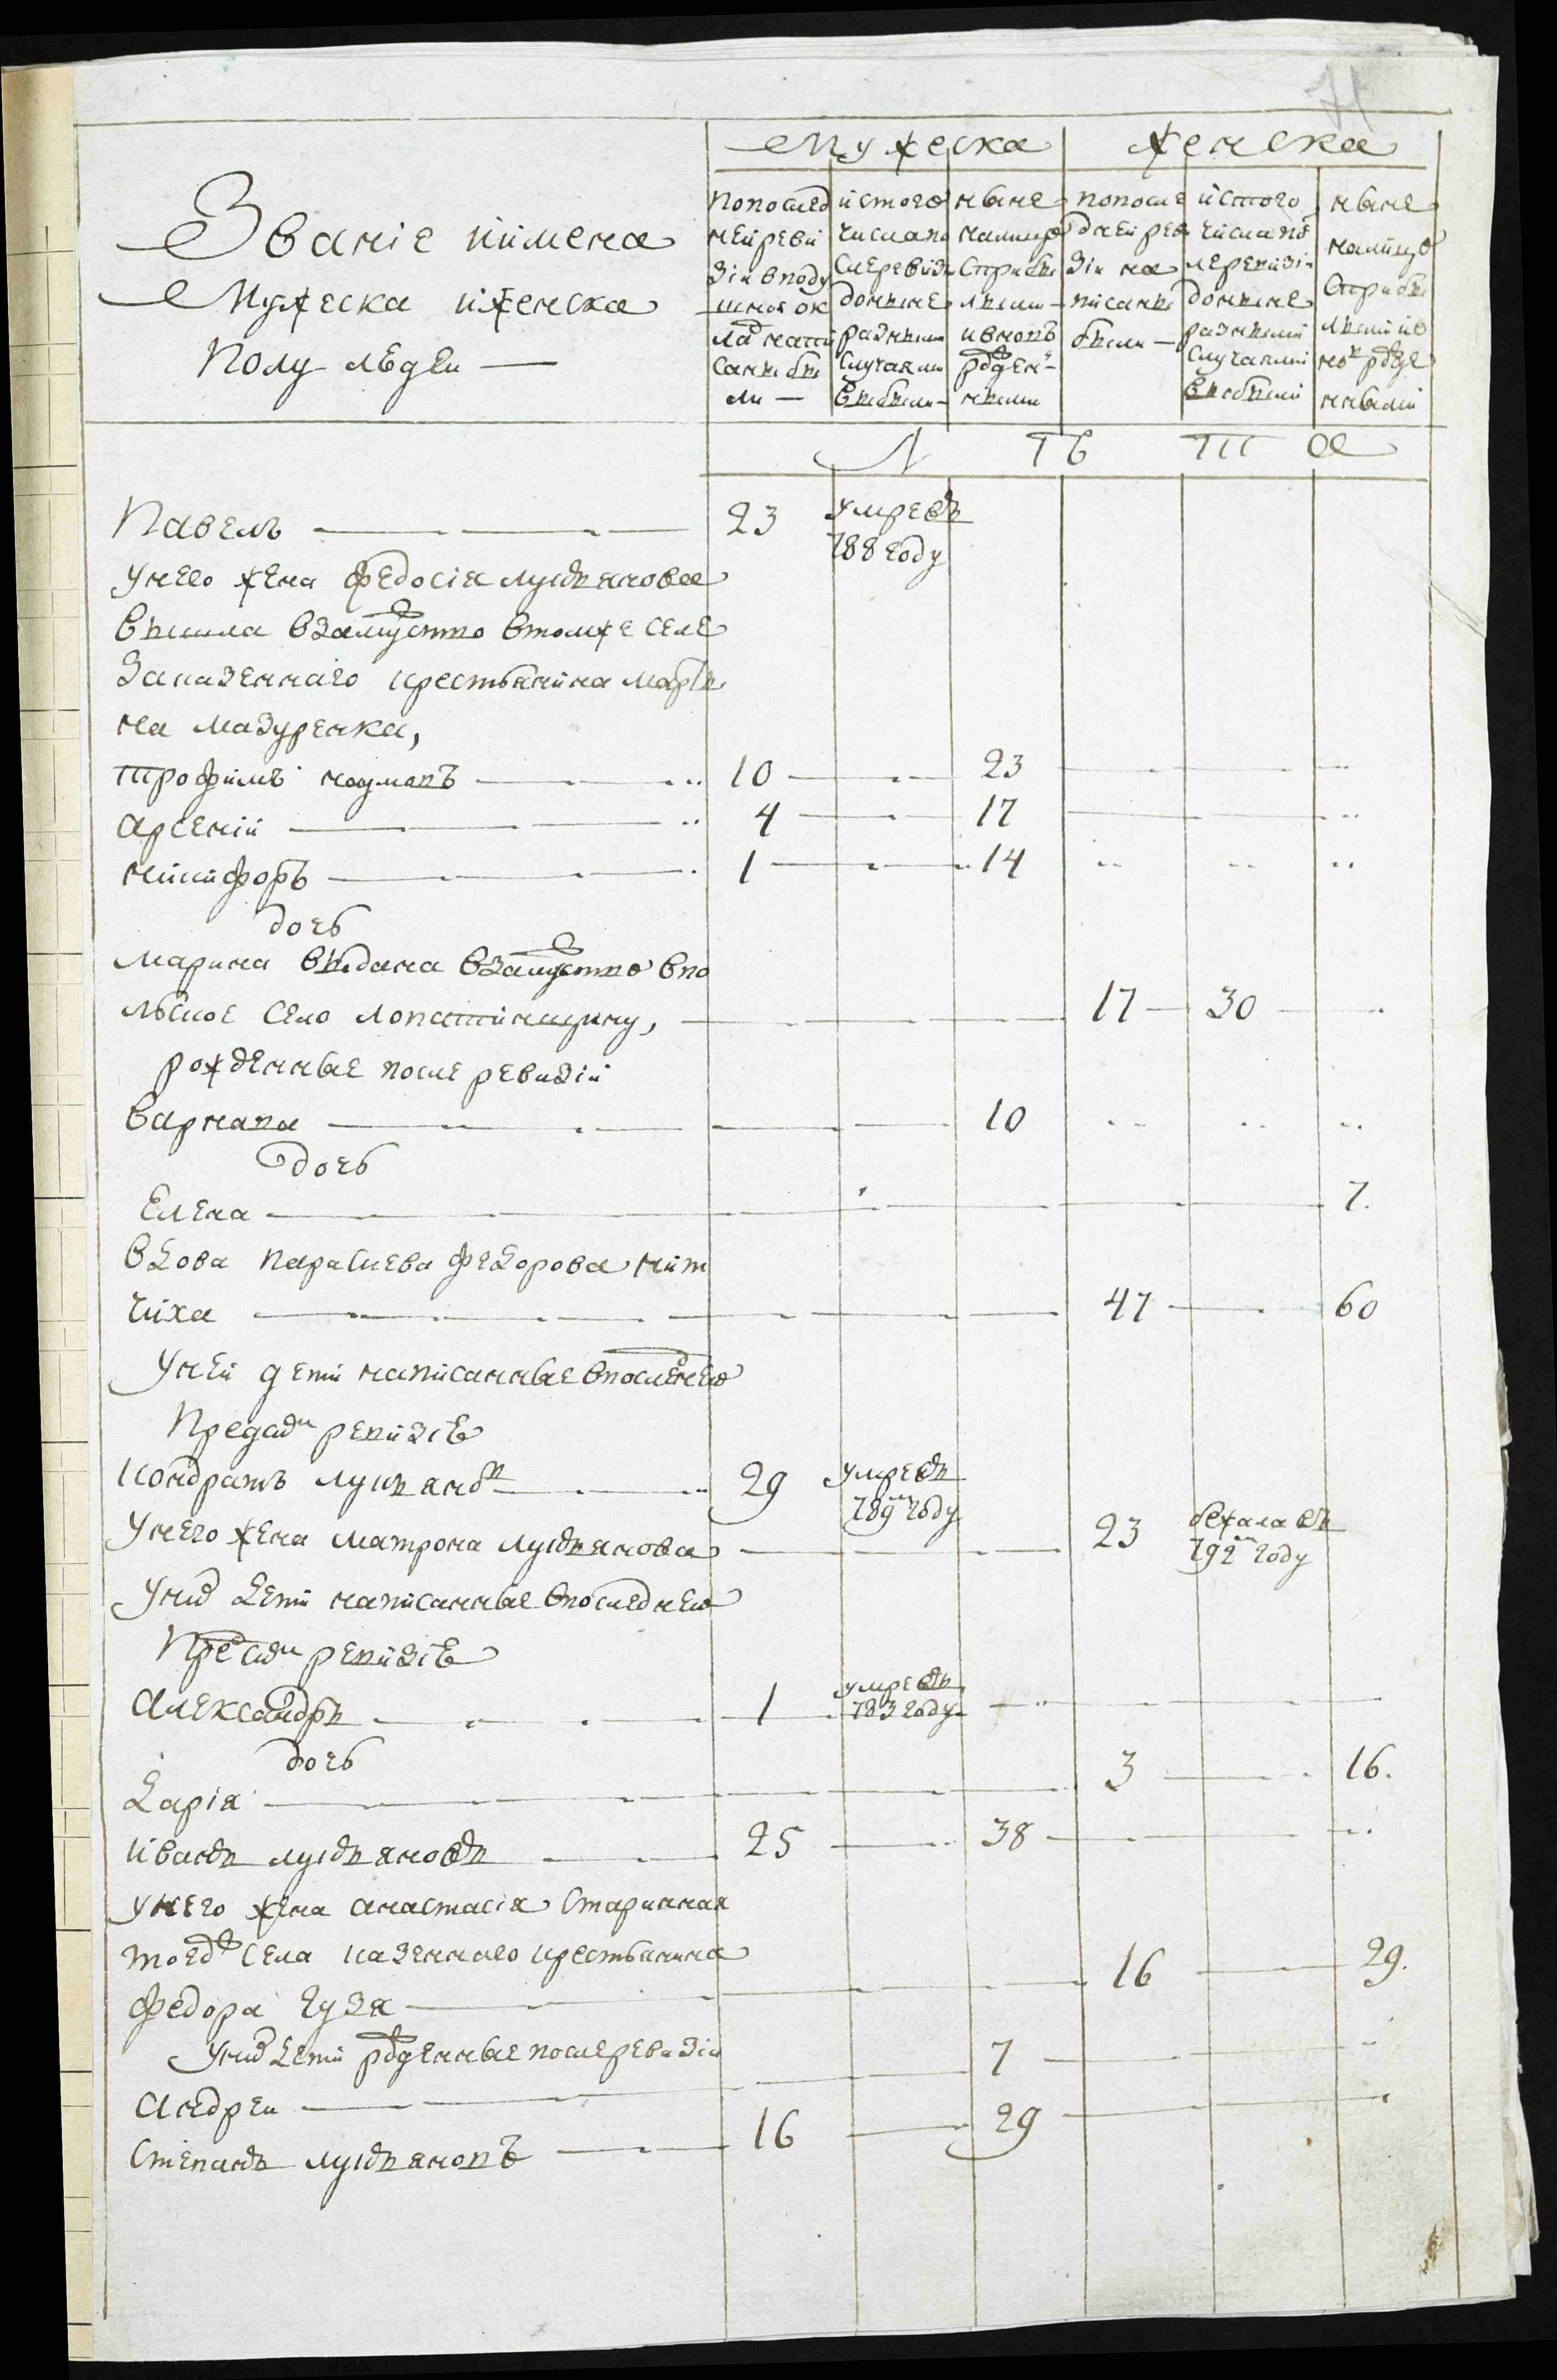 71
Мужеска Женска
Званіе иимена
Мужеска иженска
Полу людеи
Попослед
неиреви
зіи вподу
шнои ок
ладнапи
саны бы
ли
истого
числапо
слеревизіи
донынѣ
разными
Случаями
выбыли
нынѣ
налицо
Сприбы
лыми
ивновъ
рожден
ными
попосле
днеи реви
зіи на
писаны
были
истого
числапо
лѣта
Павелъ 23 умревъ
788 году
унего жена федосія лукьянова
вышла взамужство втомже селе
за казеннаго крестьянина март
на мазуренка,
трофимъ наумовъ 10 23
арсеній 4 17
никифоръ 1 14
дочь
марина выдана взамужство впо
льское село лопатинщину, 17 30
рожденные после ревизіи
варнава 10
дочь
Елена 7.
вдова параскева федорова нит
чиха 47 60
унеи дети написанные впоследнею
Предсим ревизіе
кондратъ лукьяновъ 29 умревъ
789 году
унего жена матрона лукьянова 23 бежала въ
792 году
уних дети написанные впоследнею
Пред сим ревизіе
александръ 1 умревъ
783 году
дочь
дарія 3 16.
иванъ лукьяновъ 25 38
унего жена анастасія старинная
тоежъ села казеннаго крестьянина
федора гузя 16 29.
уних дети рожденные послеревизіи
андреи 7
степанъ лукьяновъ 16 29